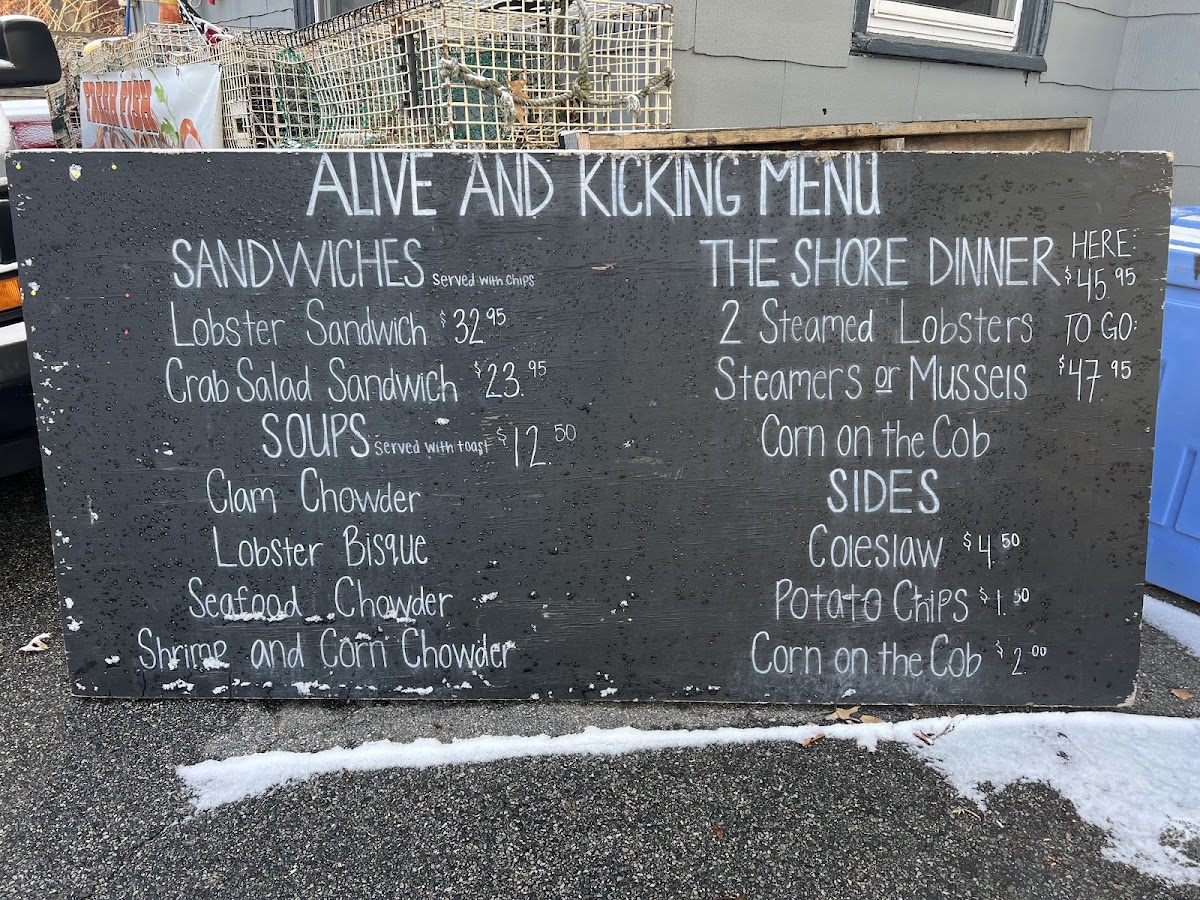 FRESH FISH
ALIVE AND KICKING MENU
SANDWICHES served with chips
Lobster Sandwich $32.95
Crab Salad Sandwich $23.95
SOUPS served with toast $12.50
Clam Chowder
Lobster Bisque
Seafood Chowder
Shrimp and Corn Chowder
THE SHORE DINNER HERE: $45.95
2 Steamed Lobsters TO GO:
Steamers or Mussels $47.95
Corn on the Cob
SIDES
Coleslaw $4.50
Potato Chips $1.50
Corn on the Cob $2.00